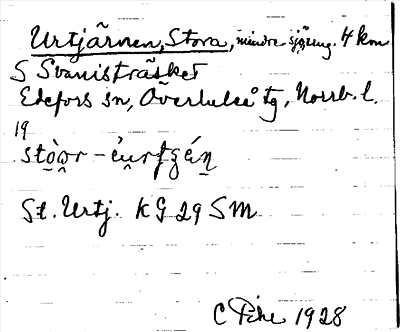 Urtjärnen, Stora, mindre sjö 4 km
S Svanisträsket
Edefors sn, Överluleå tg, Norrb. l.
19
St. Urtj. KG 29 SM
C Pihl 1928